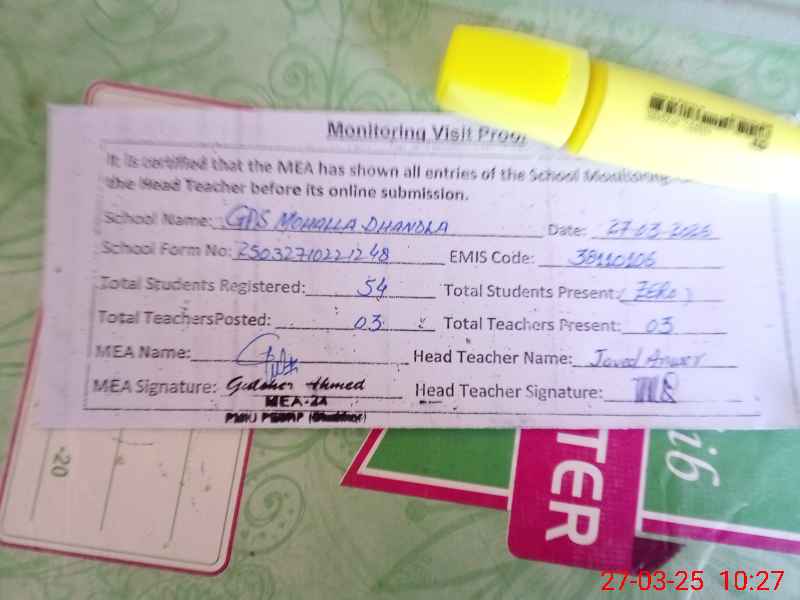 Monitoring Visit Proof
It is certified that the MEA has shown all entries of the School Monitoring
the Head Teacher before its online submission.
School Name: GPS MOHALLA DHANDLA Date: 27-03-2025
School Form No: 25032710221248 EMIS Code: 38110106
Total Students Registered: 54 Total Students Present: ZERO
Total TeachersPosted: 03 Total Teachers Present: 03
MEA Name: Head Teacher Name: Javed Anwer
MEA Signature: Gulsher Ahmed Head Teacher Signature:
MEA-21
-20
TER
27-03-25 10:27